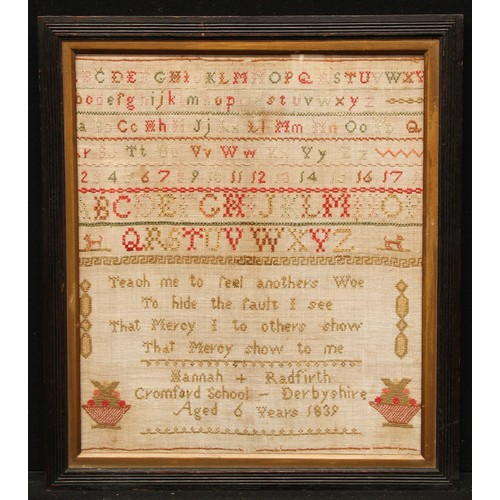 B C D E F G H I J K L M N O P Q R S T U V W X Y
b c d e f g h i j k m n o p s t u v w x y z
a Cc Hh Jj Kk Ll Mm Nn Oo Q
Tt Vv Ww Yy Zz
2 4 6 7 8 9 10 11 12 13 14 15 16 17
A B C D E F G H I J K L M N O
Q R S T U V W X Y Z
Teach me to feel anothers Woe
To hide the fault I see
That Mercy I to others show
That Mercy show to me
Hannah + Radfirth
Cromford School - Derbyshire
Aged 6 Years 1839